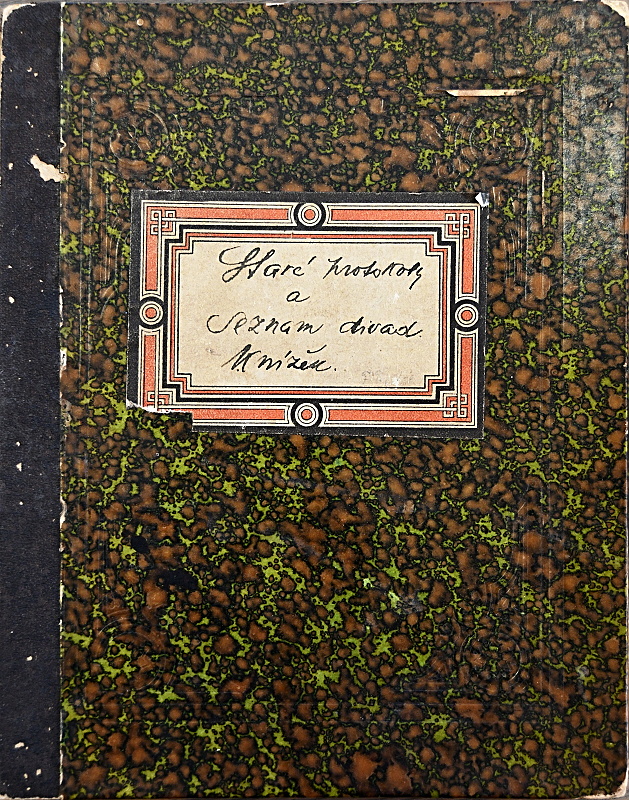 Staré protokoly
a
Seznam divad.
Knížek.